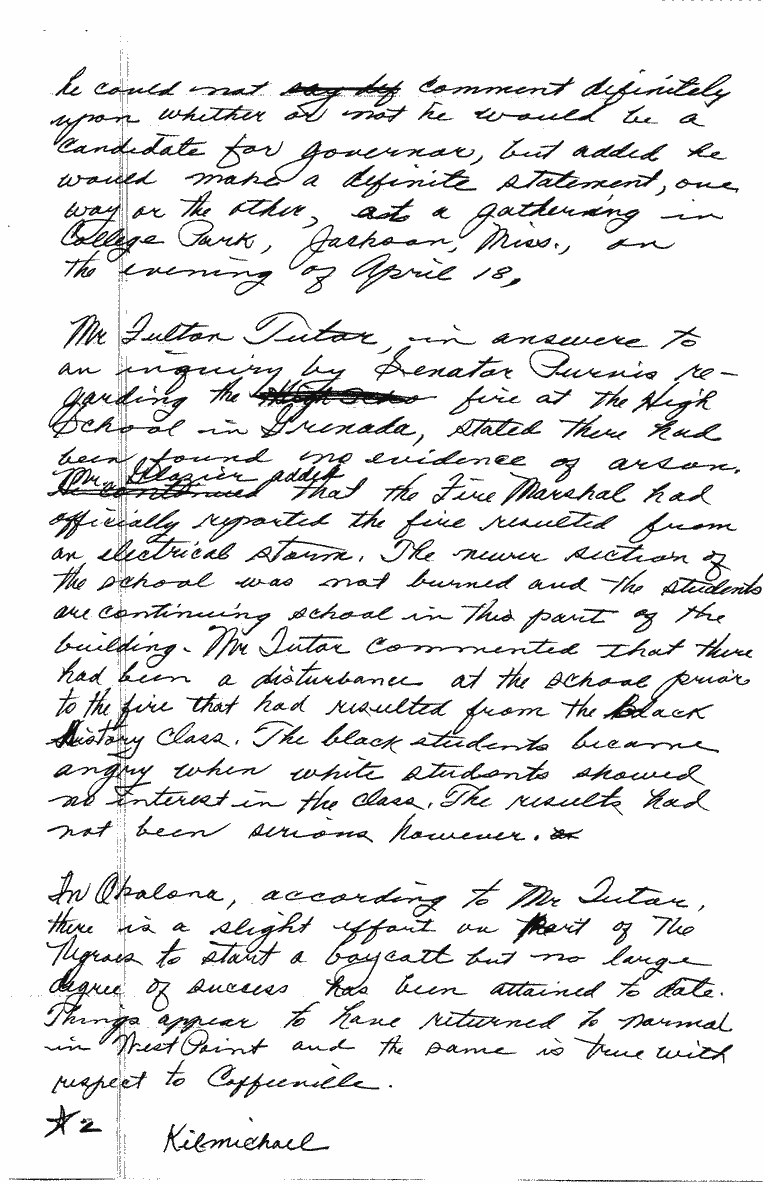 he could not say def comment difinitely
upon whether or not he would be a
candidate for governor, but added he
would make a definite statement, one
way or the other, at a gathering in
College Park, Jackson, Miss., on
the evening of April 18,
Mr Fulton Tutor, in answere to
an inquiry by Senator Purvis re-
garding the High Scho fire at the High
School in Grenada, stated there had
been found no evidence of arson.
Mr. Glazier added
He continued that the Fire Marshal had
officially reported the fire resulted from
an electrical storm. The newer section of
the school was not burned and the students
are continuing school in this part of the
building. Mr Tutor commented that there
had been a disturbance at the school prior
to the fire that had resulted from the Black
History Class. The black students became
angry when white students showed
no interest in the class. The results had
not been serious however.
In Okalona, according to Mr Tutor,
there is a slight effort on part of the
Negroes to start a boycott but no large
degree of success has been attained to date.
Things appear to have returned to normal
in West Point and the same is true with
respect to Coffeeville.
★ 2 Kilmichael